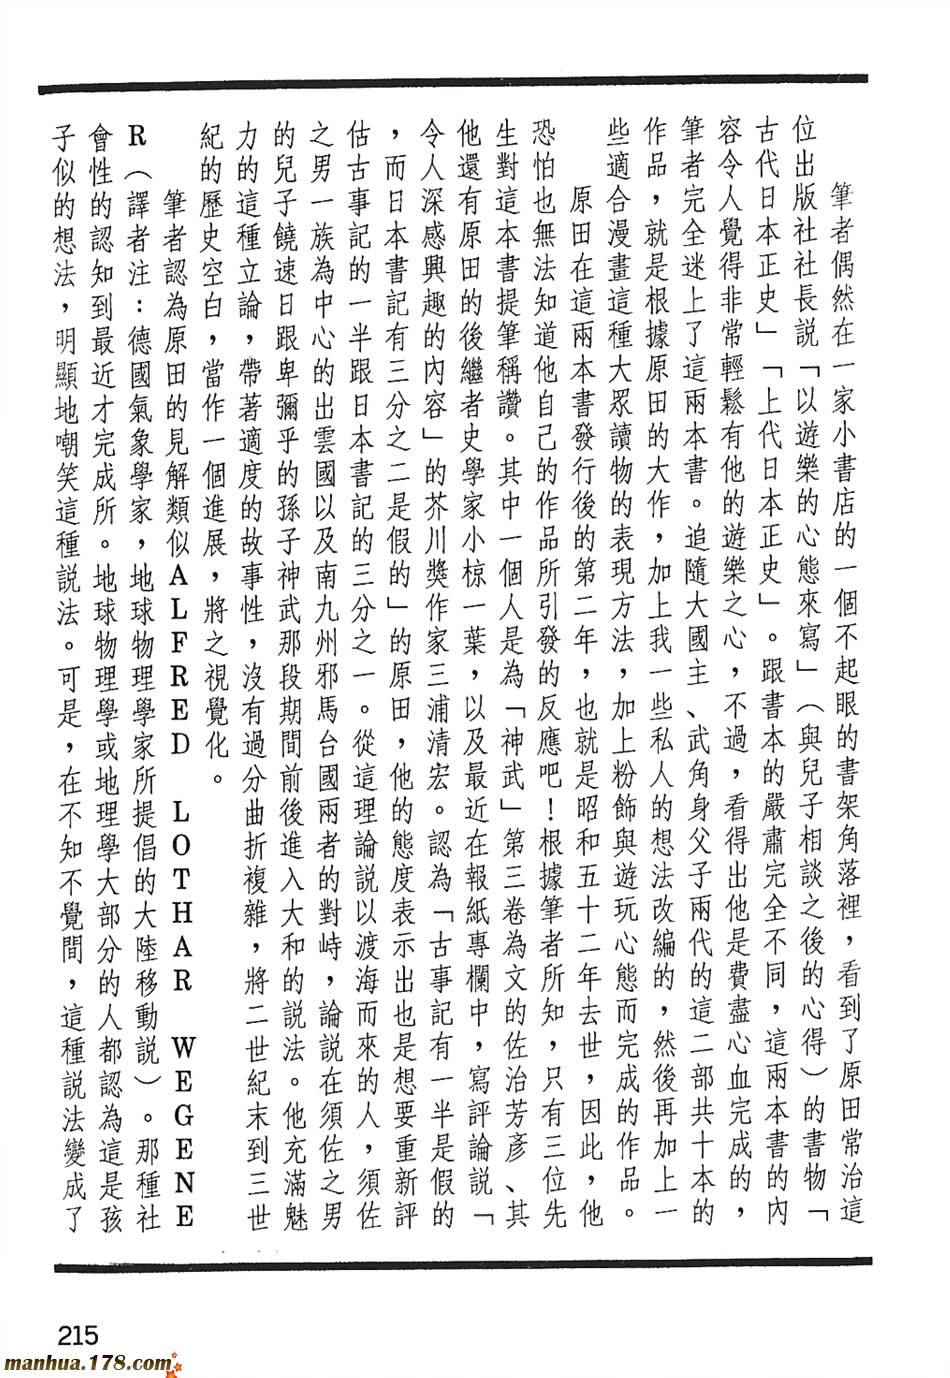 筆者偶然在一家小書店的一個不起眼的書架角落裡，看到了原田常治這
位出版社社長説「以遊樂的心態來寫」（與兒子相談之後的心得）的書物「
古代日本正史」「上代日本正史」。跟書本的嚴肅完全不同，這兩本書的內
容令人覺得非常輕鬆有他的遊樂之心，不過，看得出他是費盡心血完成的，
筆者完全迷上了這兩本書。追隨大國主、武角身父子兩代的這二部共十本的
作品，就是根據原田的大作，加上我一些私人的想法改編的，然後再加上一
些適合漫畫這種大眾讀物的表現方法，加上粉飾與遊玩心態而完成的作品。
原田在這兩本書發行後的第二年，也就是昭和五十二年去世，因此，他
恐怕也無法知道他自己的作品所引發的反應吧！根據筆者所知，只有三位先
生對這本書提筆稱讚。其中一個人是為「神武」第三卷為文的佐治芳彥、其
他還有原田的後繼者史學家小椋一葉，以及最近在報紙專欄中，寫評論説「
令人深感興趣的內容」的芥川獎作家三浦清宏。認為「古事記有一半是假的
，而日本書記有三分之二是假的」的原田，他的態度表示出也是想要重新評
估古事記的一半跟日本書記的三分之一。從這理論説以渡海而來的人，須佐
之男一族為中心的出雲國以及南九州邪馬台國兩者的對峙，論説在須佐之男
的兒子饒速日跟卑彌乎的孫子神武那段期間前後進入大和的説法。他充滿魅
力的這種立論，帶著適度的故事性，沒有過分曲折複雜，將二世紀末到三世
紀的歷史空白，當作一個進展，將之視覺化。
筆者認為原田的見解類似ALFRED LOTHAR WEGENE
R（譯者注：德國氣象學家，地球物理學家所提倡的大陸移動説）。那種社
會性的認知到最近才完成所。地球物理學或地理學大部分的人都認為這是孩
子似的想法，明顯地嘲笑這種説法。可是，在不知不覺間，這種説法變成了
215
manhua.178.com